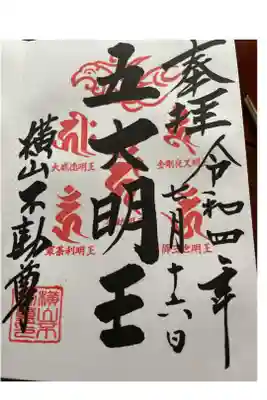 奉拝
令和四年
七月十六日
五大明王
金剛夜叉明王
大威徳明王
降三世明王
軍荼利明王
横山不動尊